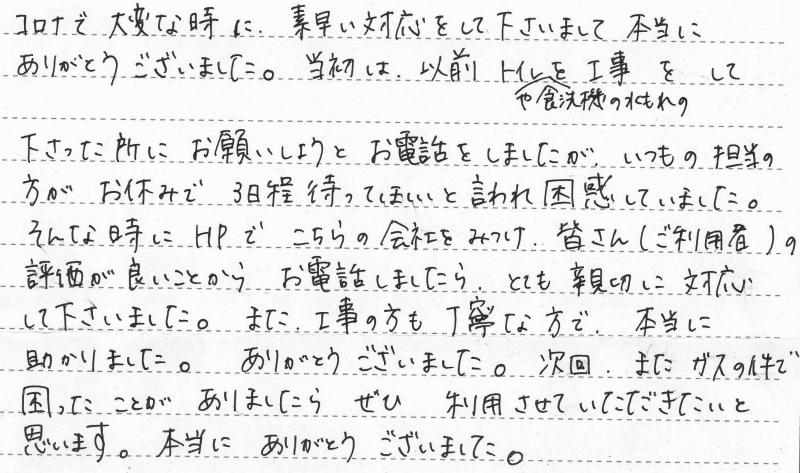 コロナで大変な時に、素早い対応をして下さいまして本当に
ありがとうございました。当初は、以前トイレを工事をして
や食洗機の水もれの
下さった所にお願いしようとお電話をしましたが、いつもの担当の
方がお休みで3日程待ってほしいと言われ困惑していました。
そんな時にHPでこちらの会社をみつけ、皆さん(ご利用者)の
評価が良いことからお電話しましたら、とても親切に対応
して下さいました。また、工事の方も丁寧な方で、本当に
助かりました。ありがとうございました。次回、またガスの件で
困ったことがありましたらぜひ利用させていただきたいと
思います。本当にありがとうございました。